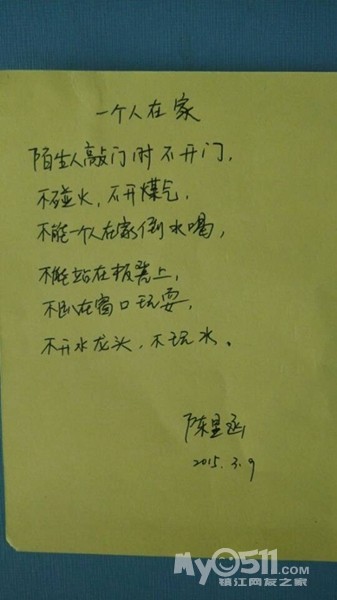 一个人在家
陌生人敲门时不开门，
不碰火，不开煤气，
不能一个人在家倒水喝，
不能站在板凳上，
不趴在窗口玩耍，
不开水龙头，不玩水。
陈星丞
2015.3.9
My0511.com
镇江网友之家